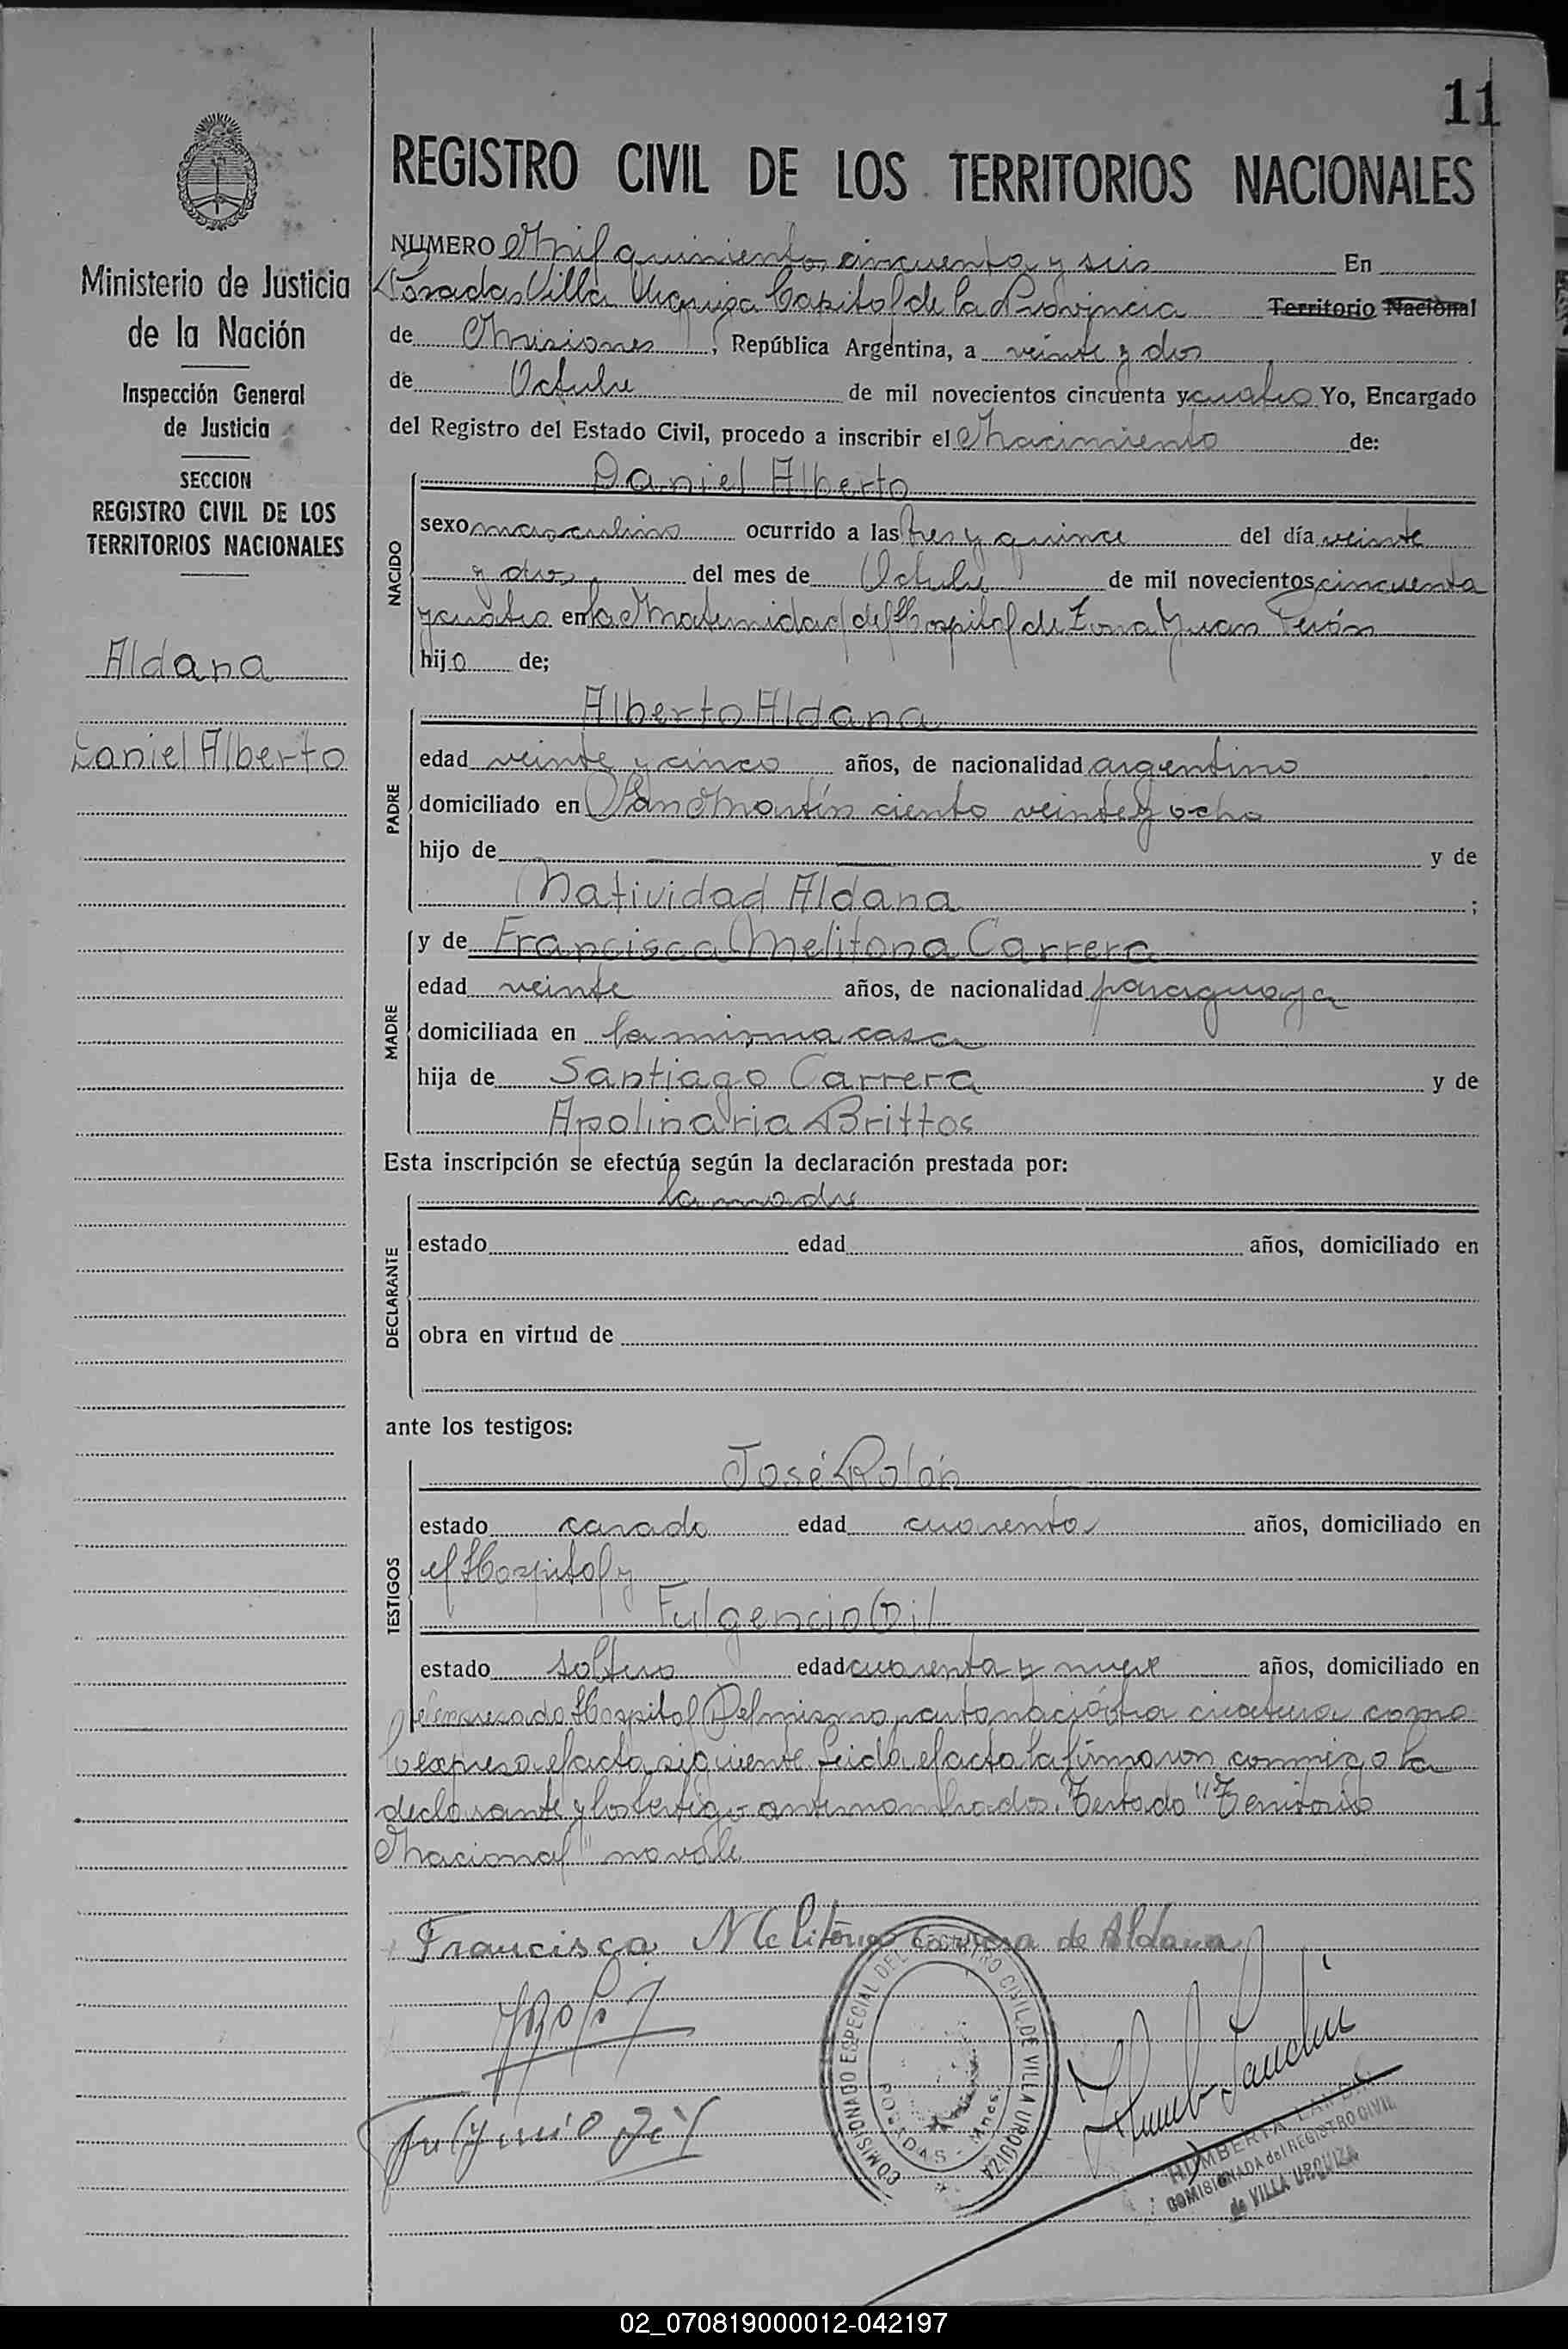 11
REGISTRO CIVIL DE LOS TERRITORIOS NACIONALES
Ministerio de Justicia
de la Nación
Inspección General
de Justicia
SECCION
REGISTRO CIVIL DE LOS
TERRITORIOS NACIONALES
Aldana
Daniel Alberto
NUMERO Mil quinientos cincuenta y seis En
Posadas Villa Urquiza Capital de la Provincia Territorio Nacional
de Misiones, República Argentina, a veinte y dos
de Octubre de mil novecientos cincuenta y cuatro Yo, Encargado
del Registro del Estado Civil, procedo a inscribir el Nacimiento de:
NACIDO
Daniel Alberto
sexo masculino ocurrido a las tres y quince del día veinte
y dos del mes de Octubre de mil novecientos cincuenta
y cuatro en la Maternidad del Hospital de Zona Juan Perón
hijo de;
PADRE
Alberto Aldana
edad veinte y cinco años, de nacionalidad argentino
domiciliado en San Martín ciento veinte y ocho
hijo de y de
Natividad Aldana ;
MADRE
y de Francisca Melitona Carrera
edad veinte años, de nacionalidad paraguaya
domiciliada en la misma casa
hija de Santiago Carrera y de
Apolinaria Brittos
Esta inscripción se efectúa según la declaración prestada por:
DECLARANTE
la madre
estado edad años, domiciliado en
obra en virtud de
ante los testigos:
TESTIGOS
José Rolón
estado casado edad cuarenta años, domiciliado en
el Hospital y
Fulgencio Gil
estado soltero edad cuarenta y nueve años, domiciliado en
el expresado Hospital Del mismo parto nació otra criatura como
lo expresa el acta siguiente Leída el acta la firmaron conmigo la
declarante y los testigo antes nombrados. Testado "Territorio
Nacional" no vale
Francisca Melitona Carrera de Aldana
Fulgencio Gil
COMISIONADO ESPECIAL DEL REGISTRO CIVIL DE VILLA URQUIZA
POSADAS - Mnes.
COMISIONADA del REGISTRO CIVIL
de VILLA URQUIZA
02_070819000012-042197